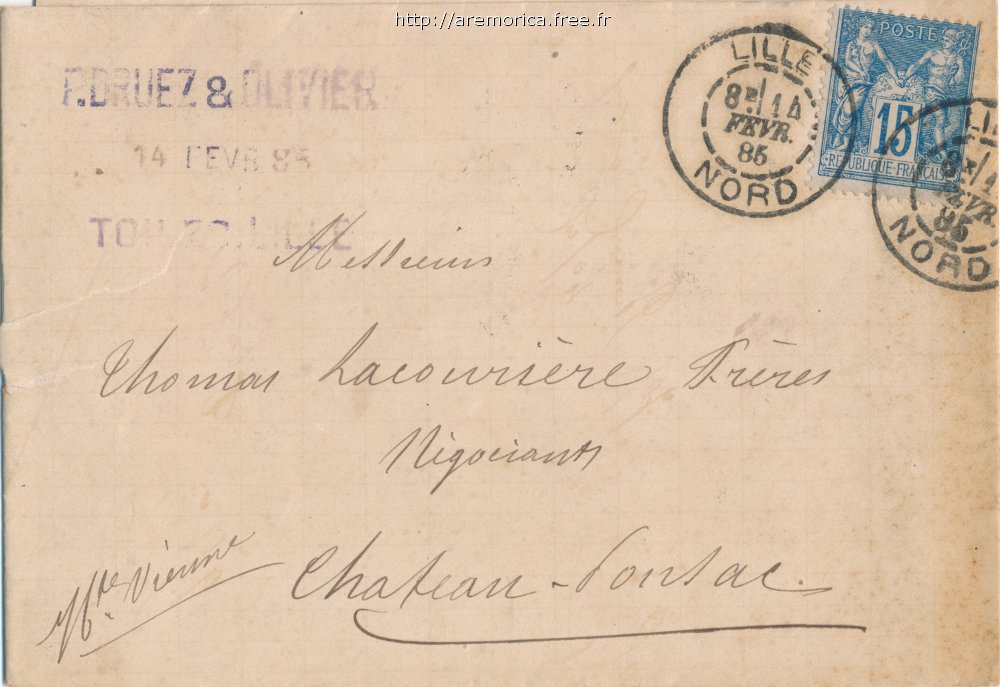 http://aremorica.free.fr
F.DRUEZ & OLIVIER
14 FEVR 85
TOILES.LILLE
LILLE
8E/14
FEVR.
85
NORD
POSTE
15
REPUBLIQUE FRANÇAISE
LI
8E/1
FEVR
85
NORD
Messieurs
Thomas Lacouvière Frères
Négociants
Chateau-Ponsac.
Hte Vienne